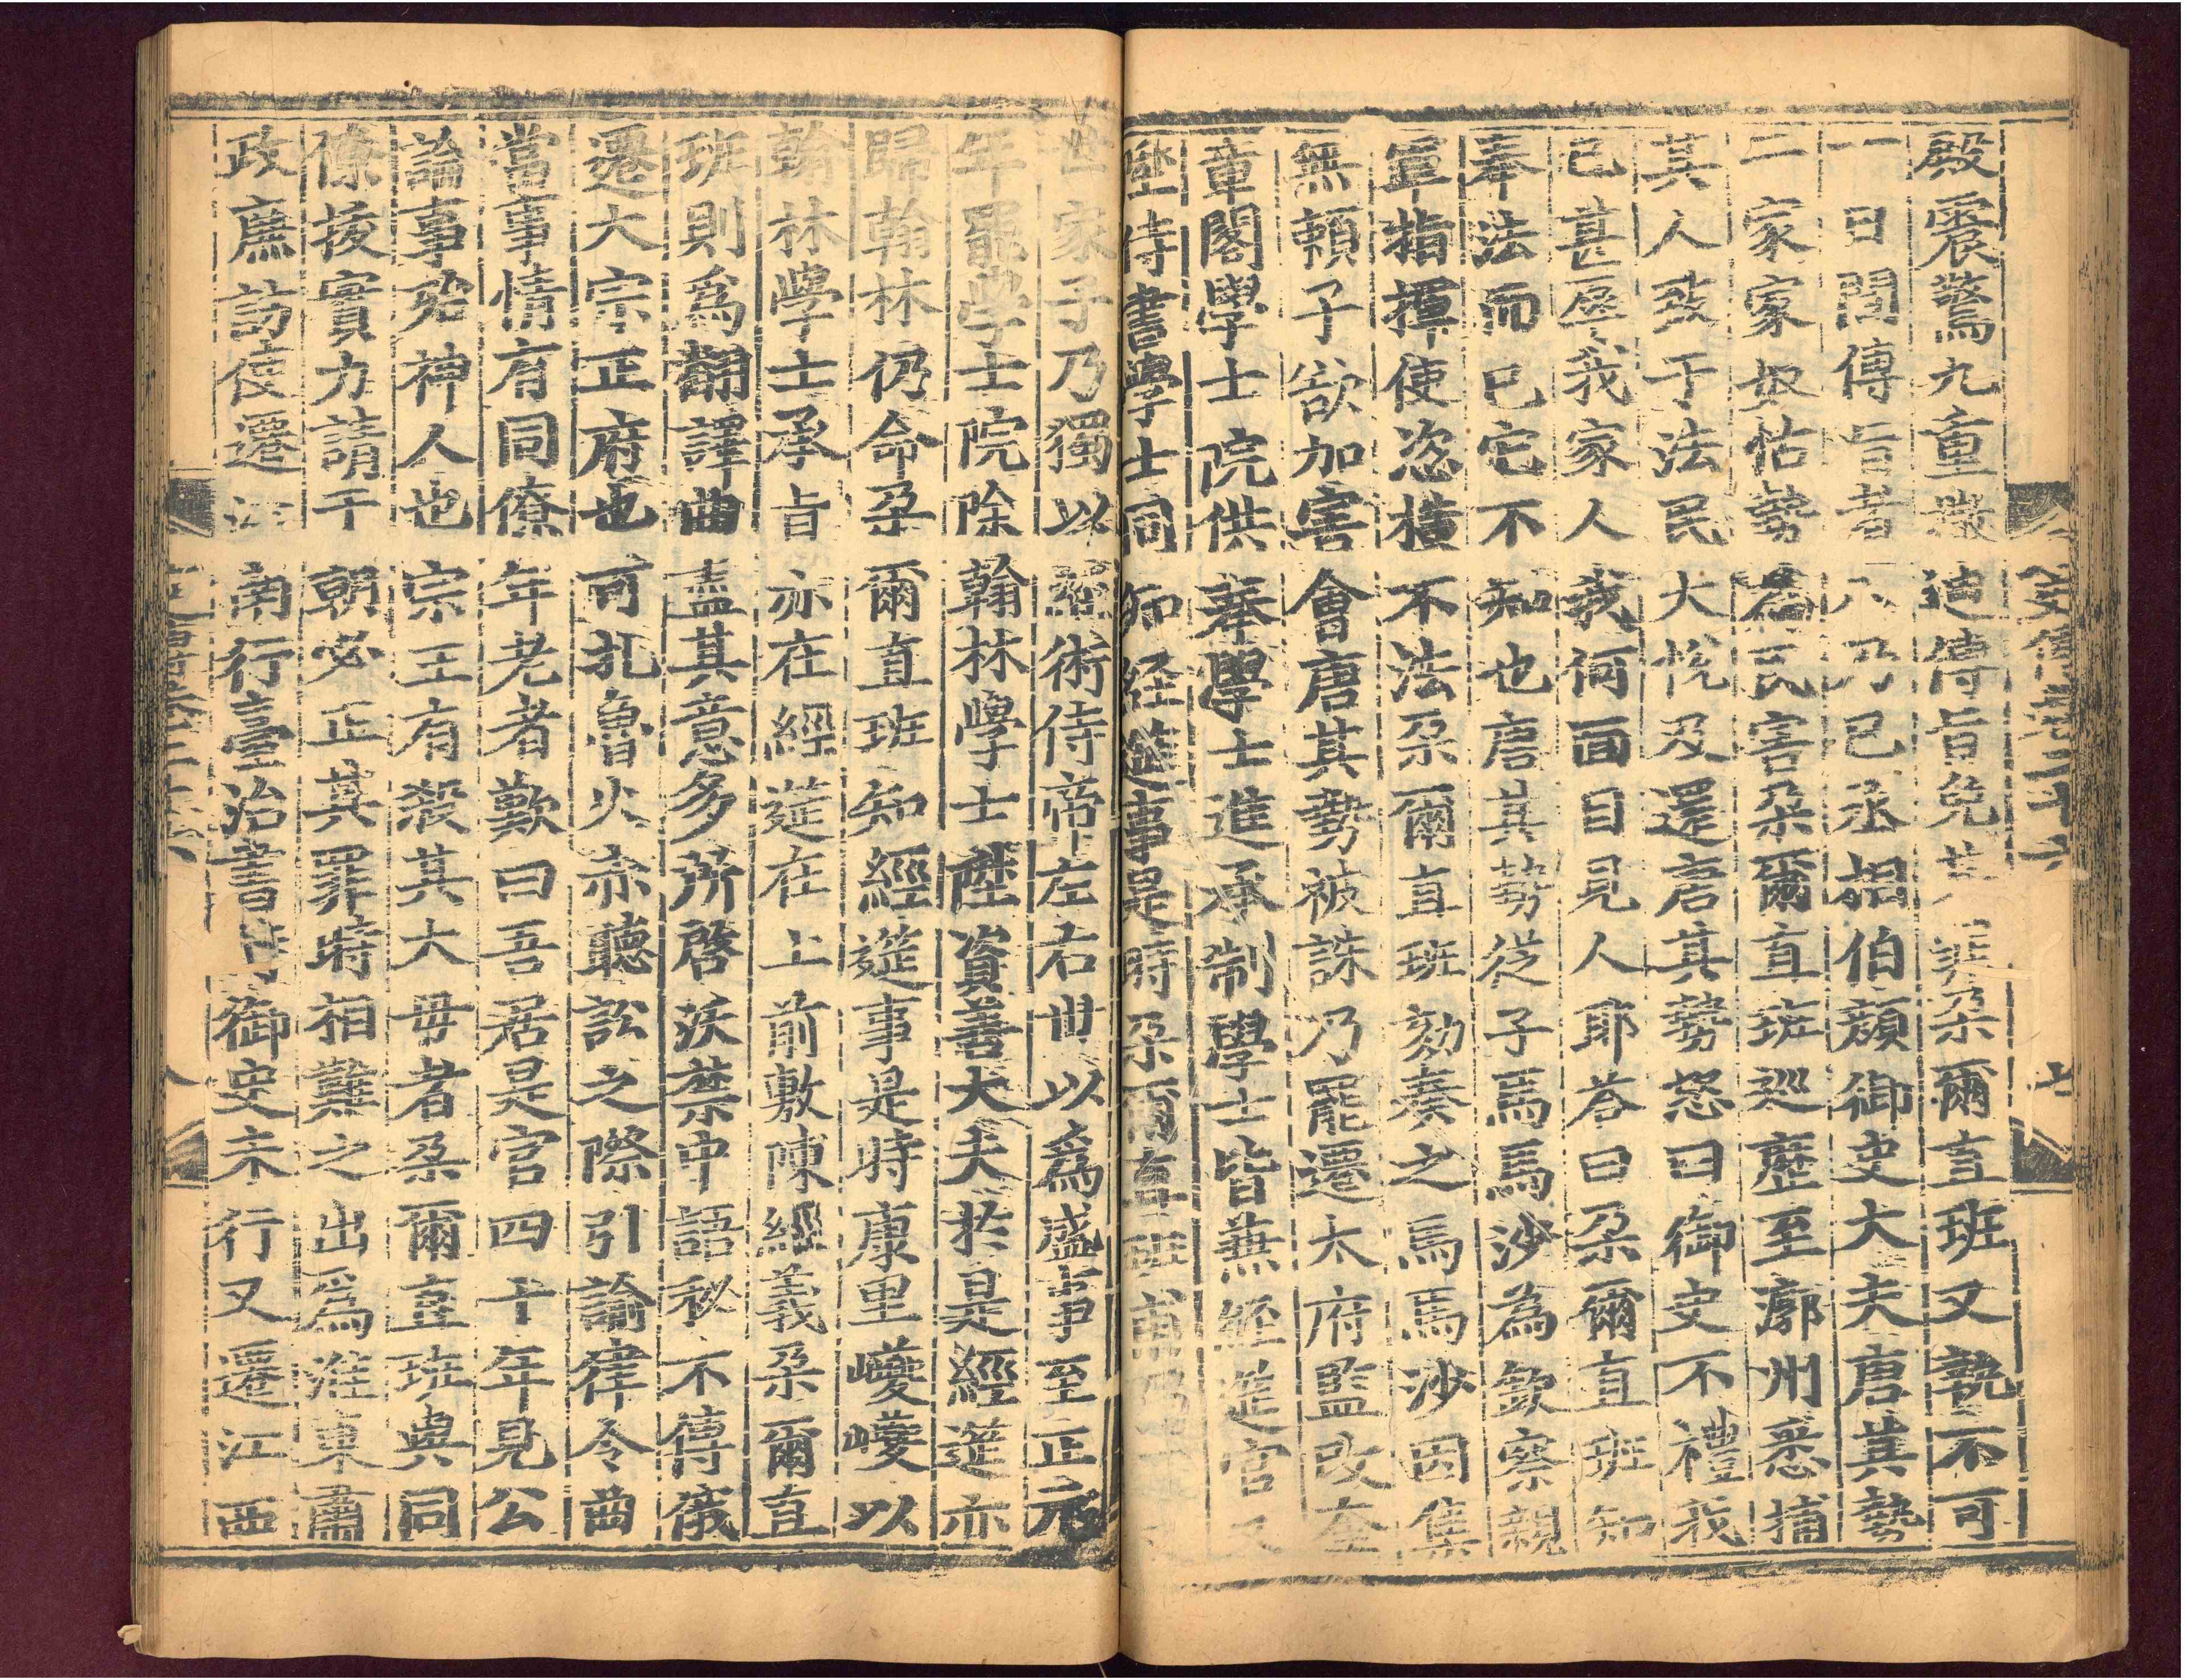 史傳卷二十六　七
殿震驚九重撒迪傳旨免其　朵爾直班又執不可
一日間傳旨者八乃已丞相伯顏御史大夫唐其勢
二家家奴怙勢為民害朵爾直班巡歷至漷州悉捕
其人致于法民大悅及還唐其勢怒曰御史不禮我
已甚辱我家人我何面目見人耶荅曰朵爾直班知
奉法而已它不知也唐其勢從子馬馬沙為欽察親
軍指揮使恣橫不法朵爾直班劾奏之馬馬沙因集
無頼子欲加害會唐其勢被誅乃罷遷太府監改奎
章閣學士院供奉學士進承制學士皆兼經筵官又
陞侍書學士同知經筵事是時朵爾直班甫
世家子乃獨以經術侍帝左右世以爲盛事至正元
年罷學士院除翰林學士陞資善大夫於是經筵亦
歸翰林仍命朵爾直班知經筵事是時康里巙巙以
翰林學士承旨亦在經筵在上前敷陳經義朵爾直
班則爲翻譯曲盡其意多所啓沃禁中語秘不傳俄
遷大宗正府也可扎魯火赤聽訟之際引諭律令曲
當事情有同僚年老者歎曰吾居是官四十年見公
論事殆神人也宗王有殺其大母者朵爾直班與同
僚拔實力請于朝必正其罪時相難之出爲淮東肅
政廉訪使遷江南行臺治書侍御史未行又遷江西